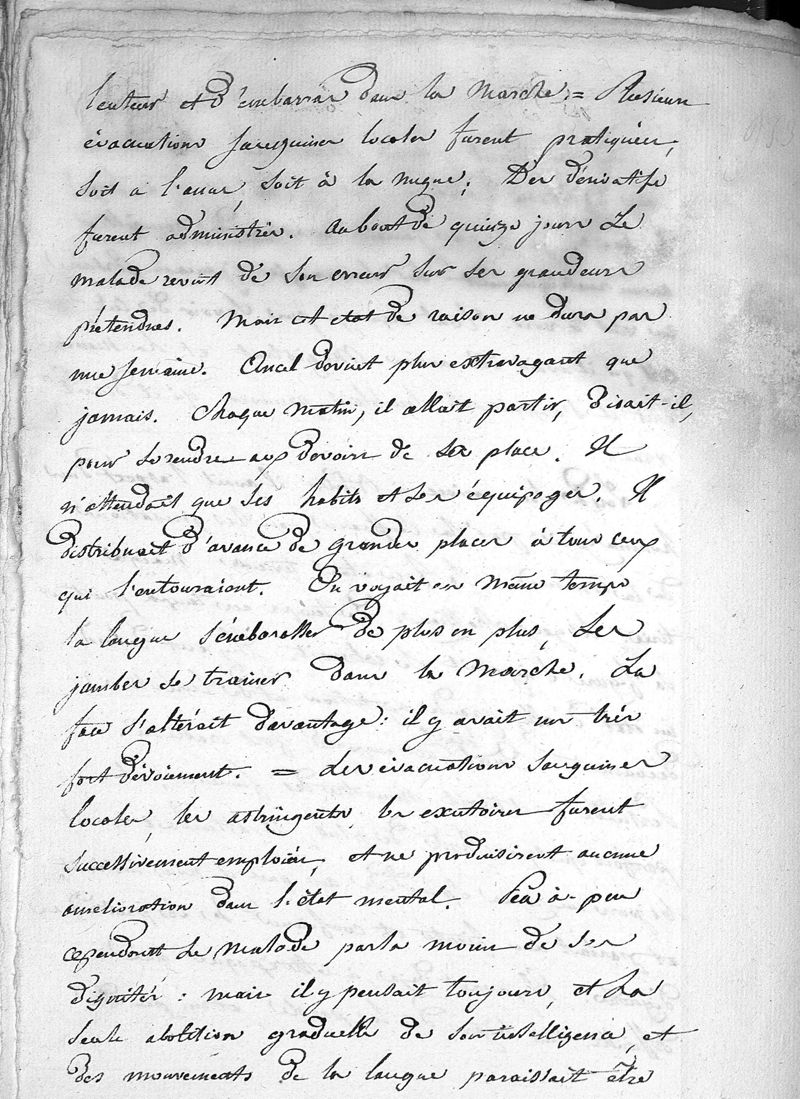 lenteur et d'embarras dans la marche. = Plusieurs
évacuations sanguines locales furent pratiquées,
soit à l'anus, soit à la nuque; Des dérivatifs
furent administrés. Au bout de quinze jours le
malade revint de son erreur sur ses grandeurs
prétendues. Mais cet état de raison ne dura pas
une semaine. Ancel devint plus extravagant que
jamais. Chaque matin, il allait partir, disait-il,
pour se rendre aux devoirs de sa place. Il
n'attendait que ses habits et ses équipages. Il
distribuait d'avance de grandes places à tous ceux
qui l'entouraient. On voyait en même temps
la langue s'embarasser de plus en plus, Les
jambes se trainer dans la marche. La
face s'altérait davantage: il y avait un très
fort dévoiement. = des évacuations sanguines
locales, les astringents, les exutoires furent
successivement employés, et ne produisirent aucune
amélioration dans l'état mental. Peu à-peu
cependant le malade parla moins de ses
dignités: mais il y pensait toujours, et la
seule abolition graduelle de son intelligence, et
des mouvements de la langue paraissait être